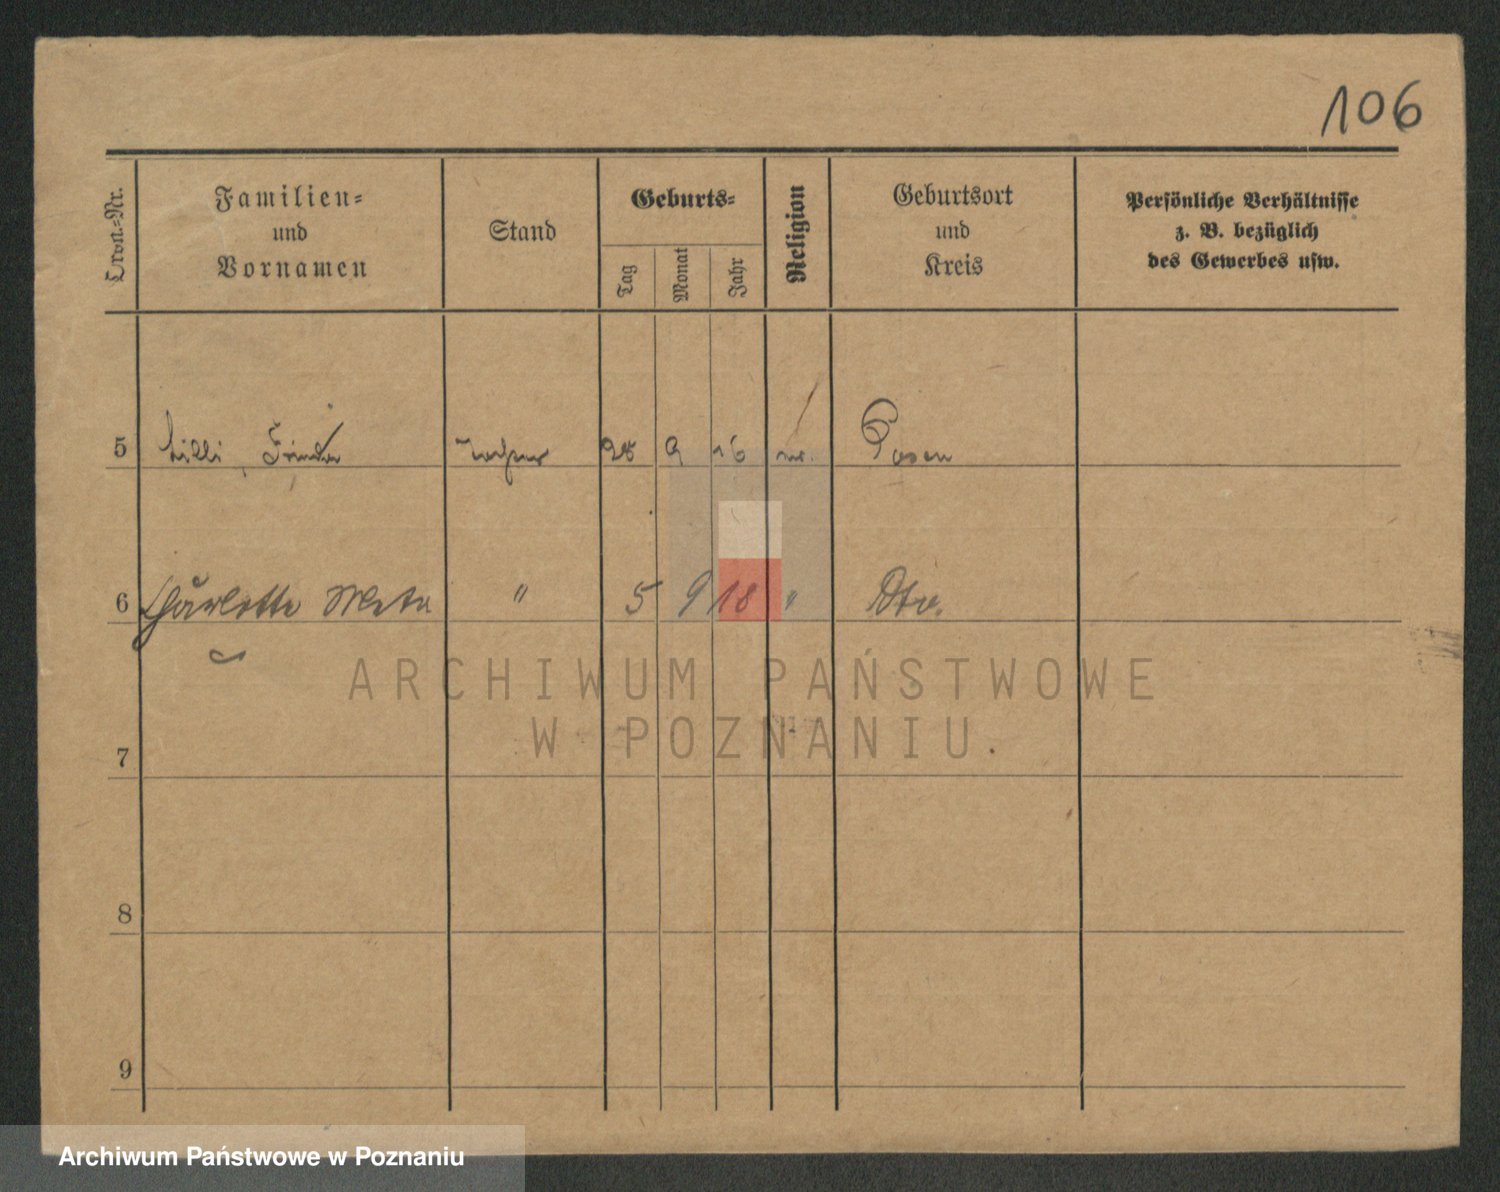 106
Ordn.-Nr.
Familien-
und
Vornamen
Stand
Geburts-
Tag
Monat
Jahr
Religion
Geburtsort
und
Kreis
Persönliche Verhältnisse
z. B. bezüglich
des Gewerbes usw.
5 Lilli Tochter 28 9 16 Posen
6 Charlotte Meta " 5 9 18 " Dto.
ARCHIWUM PAŃSTWOWE
W POZNANIU
7
8
9
Archiwum Państwowe w Poznaniu